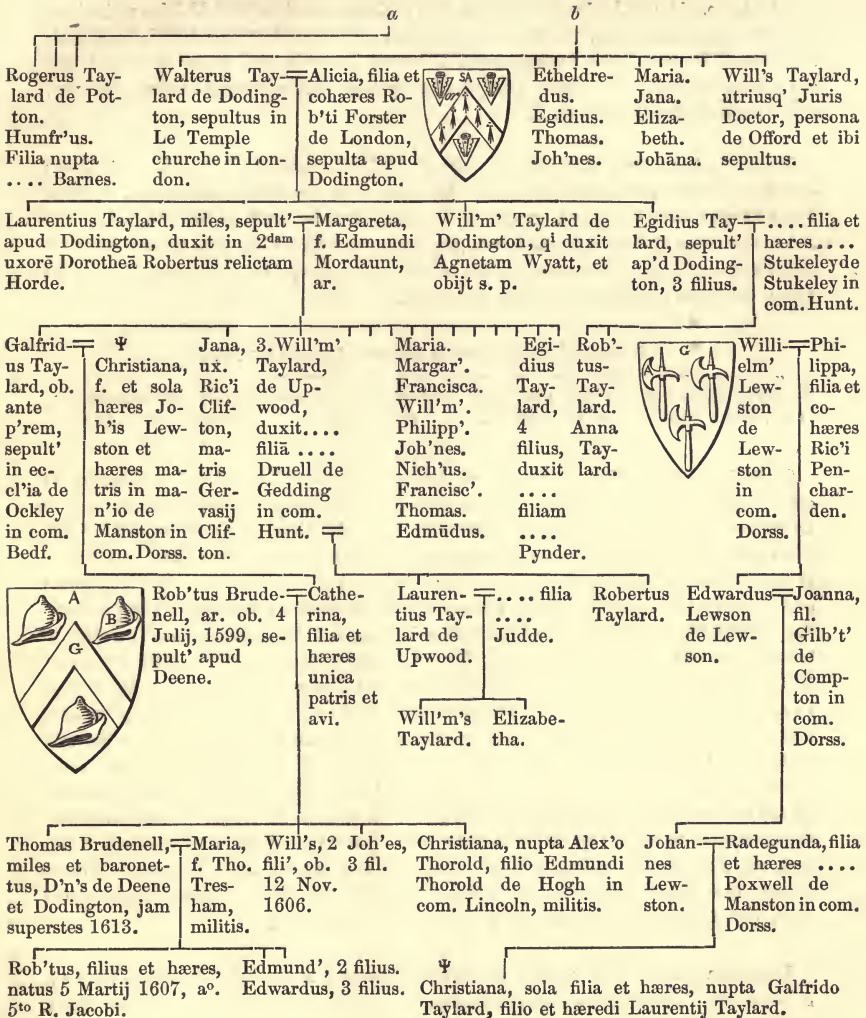 a
b
Rogerus Tay-
lard de Pot-
ton.
Humfr'us.
Filia nupta
.... Barnes.
Walterus Tay-
lard de Doding-
ton, sepultus in
Le Temple
churche in Lon-
don.
Alicia, filia et
cohæres Ro-
b'ti Forster
de London,
sepulta apud
Dodington.
SA
or
Etheldre-
dus.
Egidius.
Thomas.
Joh'nes.
Maria.
Jana.
Eliza-
beth.
Johāna.
Will's Taylard,
utriusq' Juris
Doctor, persona
de Offord et ibi
sepultus.
Laurentius Taylard, miles, sepult'
apud Dodington, duxit in 2dam
uxorē Dorotheā Robertus relictam
Horde.
Margareta,
f. Edmundi
Mordaunt,
ar.
Will'm' Taylard de
Dodington, qi duxit
Agnetam Wyatt, et
obijt s. p.
Egidius Tay-
lard, sepult'
ap'd Doding-
ton, 3 filius.
.... filia et
hæres ....
Stukeley de
Stukeley in
com. Hunt.
Galfrid-
us Tay-
lard, ob.
ante
p'rem,
sepult'
in ec-
cl'ia de
Ockley
in com.
Bedf.
Ψ
Christiana,
f. et sola
hæres Jo-
h'is Lew-
ston et
hæres ma-
tris in ma-
n'io de
Manston in
com. Dorss.
Jana,
ux.
Ric'i
Clif-
ton,
ma-
tris
Ger-
vasij
Clif-
ton.
3. Will'm'
Taylard,
de Up-
wood,
duxit....
filiā ....
Druell de
Gedding
in com.
Hunt.
Maria.
Margar'.
Francisca.
Will'm'.
Philipp'.
Joh'nes.
Nich'us.
Francisc'.
Thomas.
Edmūdus.
Egi-
dius
Tay-
lard,
4
filius,
duxit
....
filiam
....
Pynder.
Rob'-
tus-
Tay-
lard.
Anna
Tay-
lard.
G
A
Willi-
elm'
Lew-
ston
de
Lew-
ston
in
com.
Dorss.
Phi-
lippa,
filia et
co-
hæres
Ric'i
Pen-
char-
den.
A
B
G
Rob'tus Brude-
nell, ar. ob. 4
Julij, 1599, se-
pult' apud
Deene.
Cathe-
rina,
filia et
hæres
unica
patris et
avi.
Lauren-
tius Tay-
lard de
Upwood.
.... filia
....
Judde.
Robertus
Taylard.
Edwardus
Lewson
de Lew-
son.
Joanna,
fil.
Gilb't'
de
Comp-
ton in
com.
Dorss.
Will'm's
Taylard.
Elizabe-
tha.
Thomas Brudenell,
miles et baronet-
tus, D'n's de Deene
et Dodington, jam
superstes 1613.
Maria,
f. Tho.
Tres-
ham,
militis.
Will's, 2
fili', ob.
12 Nov.
1606.
Joh'es,
3 fil.
Christiana, nupta Alex'o
Thorold, filio Edmundi
Thorold de Hogh in
com. Lincoln, militis.
Johan-
nes
Lew-
ston.
Radegunda, filia
et hæres ....
Poxwell de
Manston in com.
Dorss.
Rob'tus, filius et hæres,
natus 5 Martij 1607, ao.
5to R. Jacobi.
Edmund', 2 filius.
Edwardus, 3 filius.
Ψ
Christiana, sola filia et hæres, nupta Galfrido
Taylard, filio et hæredi Laurentij Taylard.